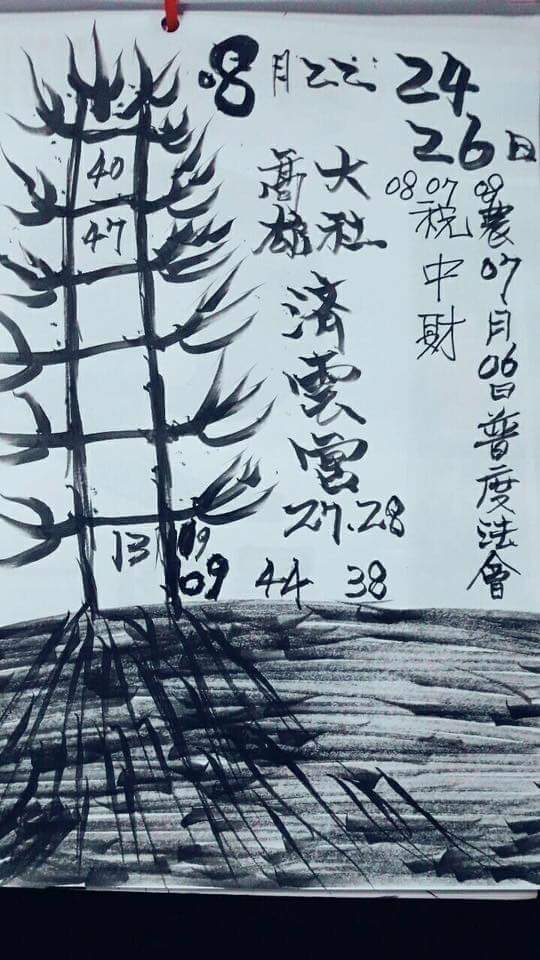 08月22 24
26日
09農07月06日普度法會
08 07稅中財
大社
高雄
濟雲宮
27.28
40
47
13 09
09 44 38